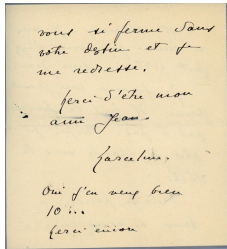 vous si ferme dans
votre destin et je
me redresse.
Merci d'être mon
ami Jean.
Marcelin.
Oui j'en veux bien
10
Merci